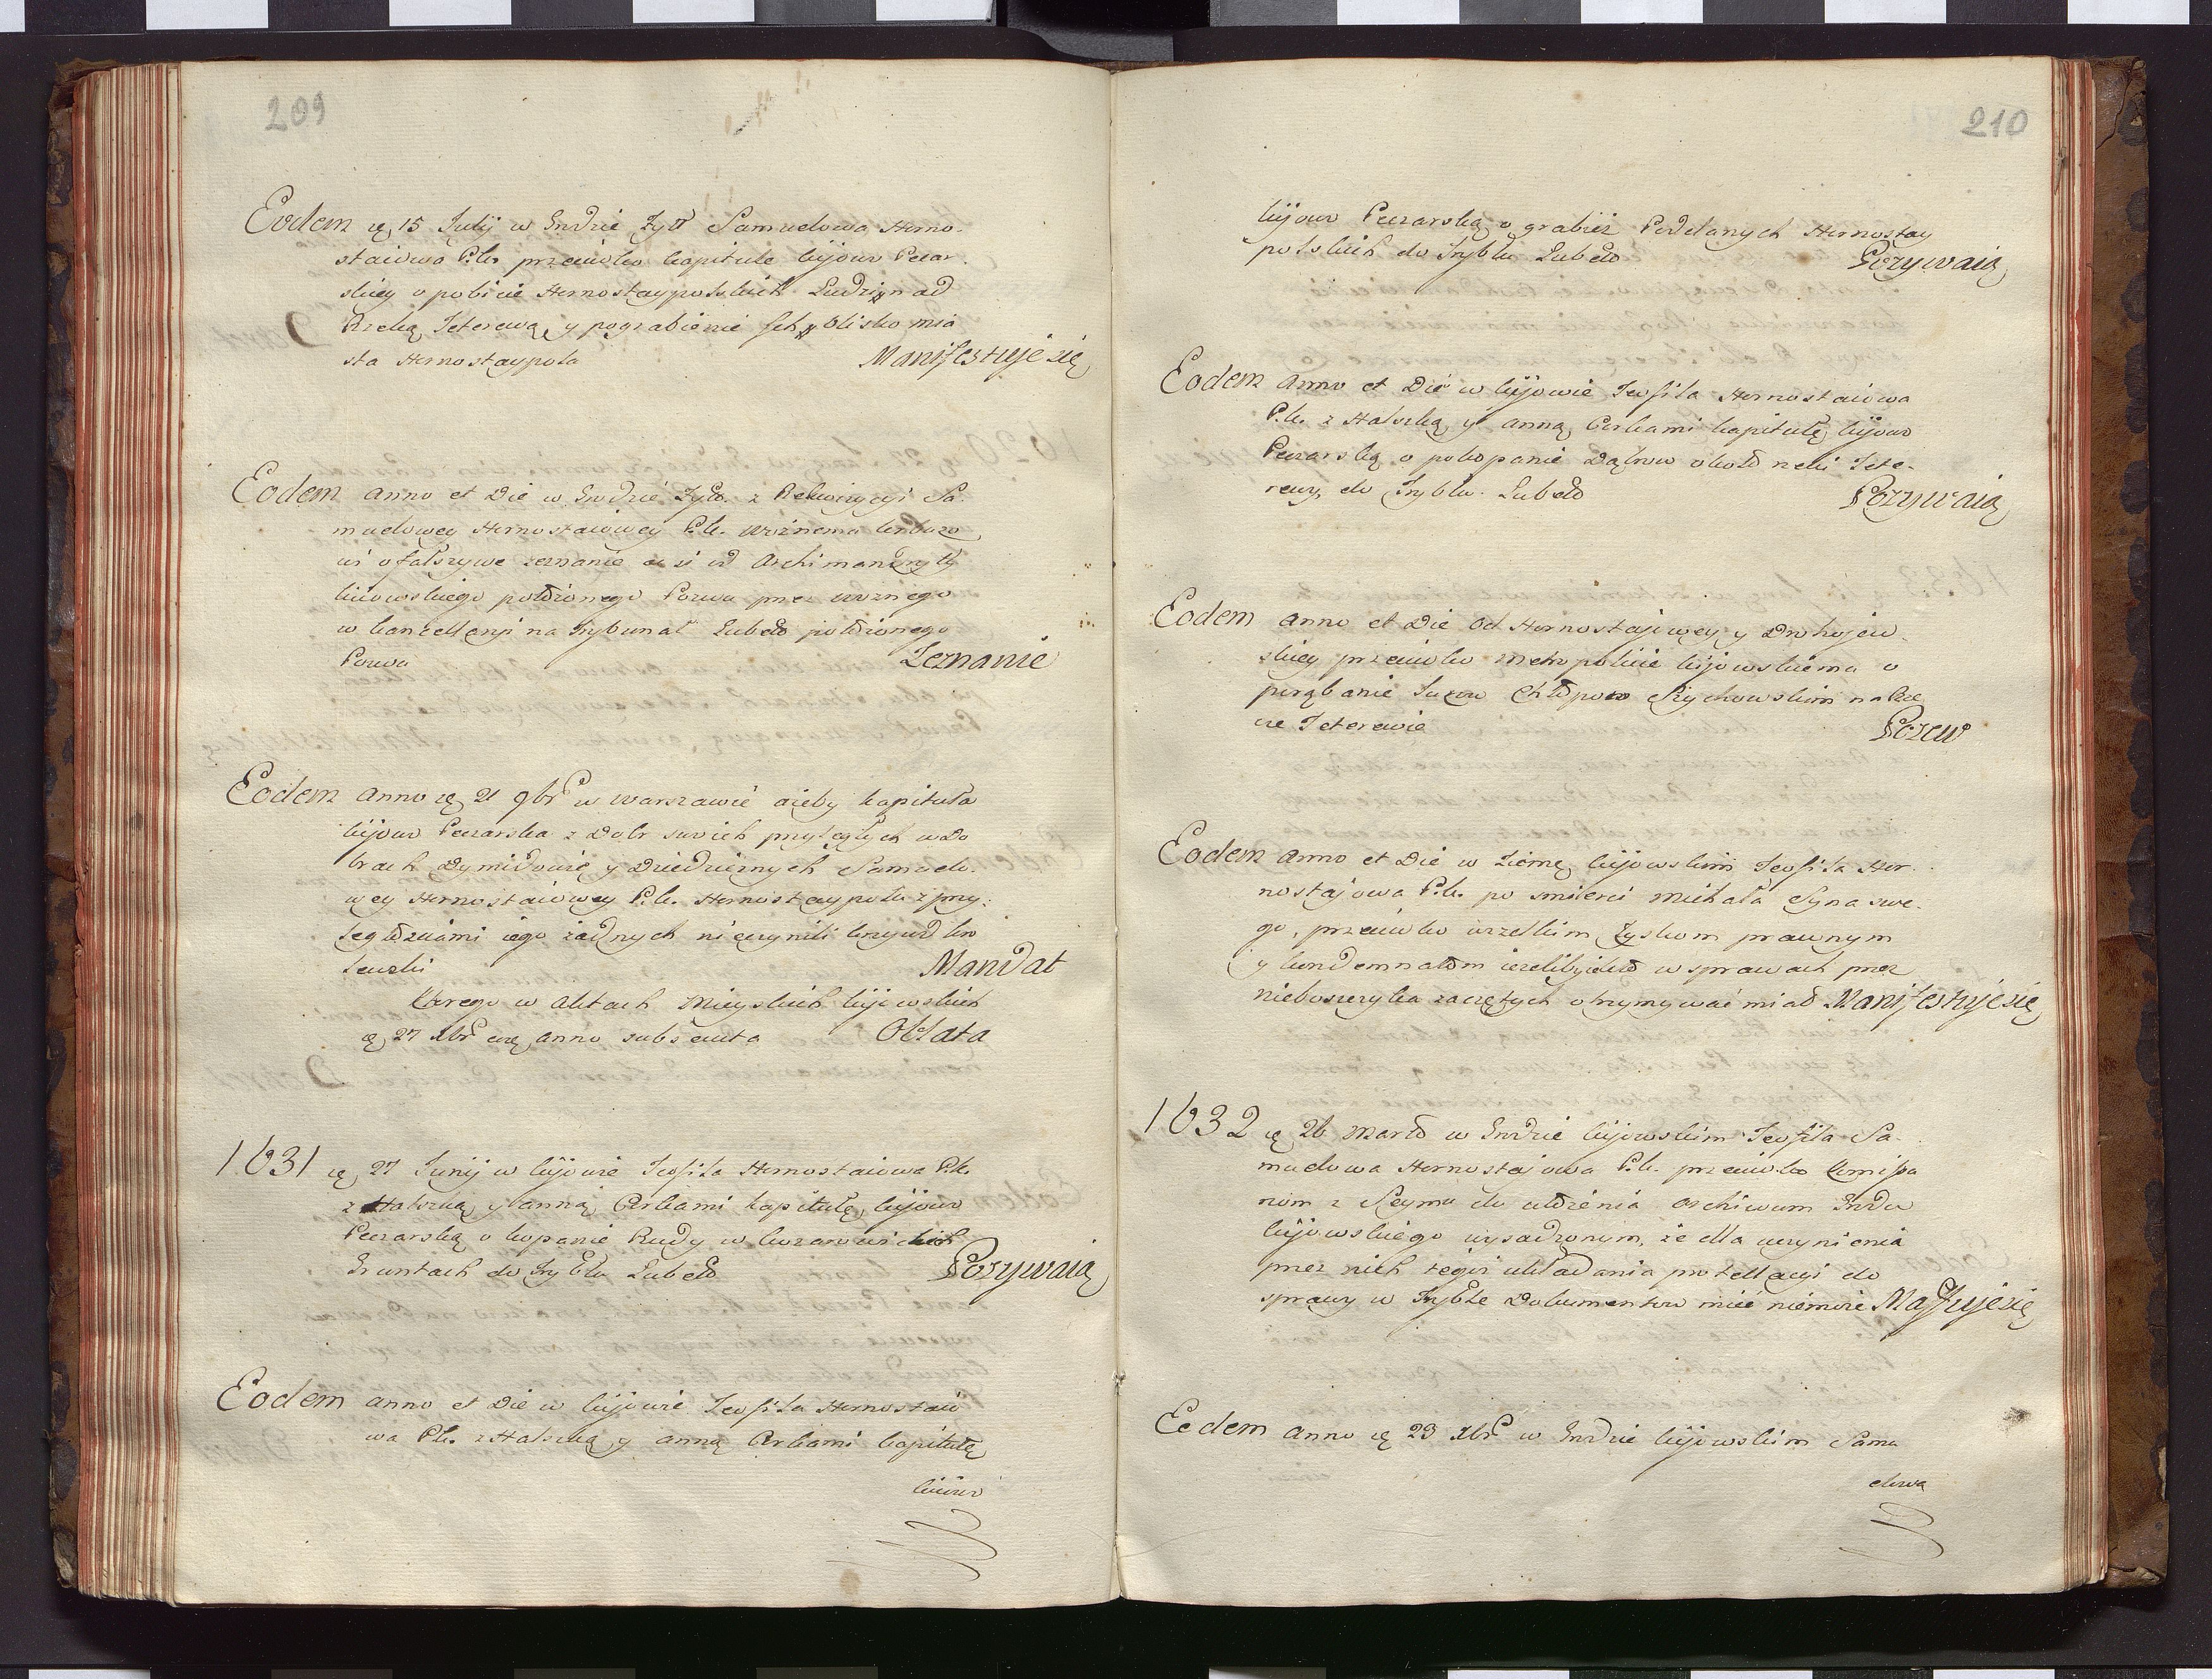 209
Eodem ę 15 Julij w Grodzie Żytt Samuelowa Horno-
staiowa P.k. przeciwko kapitule kijow Peczar
skiey o pobicie Hornostaypolskich Ludzi nad
Rzeką Teterewą y pograbienie Ich blisko mia
sta Hornostaypola Manifestuje się
Eodem anno et Die w Grodzie Żyto. z Rekwizycyi Sa-
muelowey Hornostaiowey P.k. woźnemu
o fałszywe zeznanie od Archimandryty
kiiowskiego położonego Pozwu przez woznego
w kancellaryi na Trybunał Lubelo położonego
Pozwu Zeznanie
Eodem anno ę 21 9br w warszawie ażeby kapituła
kijow Peczarska z Dobr swoich przyległych w Do
brach Dymidowie y Dziedzicznych Samuelo-
wey Hornostaiowey P.k. Hornostaypolu z przy-
ległościami iego żadnych nieczynili krzywd kro
lewski Mandat
Ktorego w aktach Mieyskich kijowskich
ę 27 Xbr anno subsecuto Oblata
1631 ę 27 Junij w kijowie Teofila Hornostaiowa P.k.
z Halszką y anną Corkami kapitułę kijow
Peczarską o kopanie Rudy w
Gruntach do Trybłu Lubelo Pozywaią
Eodem anno et Die w kijowie Teofila Hornostaio
wa P.k. z Halszką y anną Corkami kapitułę
kiiow
210
kijow Peczarską o grabież Poddanych Hornostay
polskich do Tryblu Lubelo Pozywaią
Eodem anno et Die w kijowie Teofila Hornostaiowa
P.k. z Halszką y anną Corkami kapitułę kijow
Peczarską o pokopanie Dąbrow około rzeki Tete-
rewy do Tryblu. Lubelo Pozywaią
Eodem anno et Die Od Hornostajowey y Drohojew-
skiey przeciwko metropolicie kijowskiemu o
porąbanie Chłopow Szychowskim na Rze
ce Teterewie Pozew
Eodem anno et Die w Ziemę kijowskim Teofila Hor-
nostajowa P.k. po śmierci Michała Syna swe-
go, przeciwko wszelkim Zyskom prawnym
y kondemnatom ieżeliby iekto w sprawach przez
nieboszczyka zaczętych otrzymywać miał Manifestuje się
1632 ę 26 Marto w Grodzie kijowskim Teofila Sa-
muelowa Hornostajowa P.k. przeciwko Komissa
rzom z Seymu do ułożenia Archiwum Grodu
kijowskiego wysadzonym, że dla uczynienia
przez nich tegoż układania protellacyi do
sprawy w Tryble Dokumentow mieć niemoże Maffuje się
Eodem anno ę 23 Xbr w Grodzie kijowskim Samu
elowa